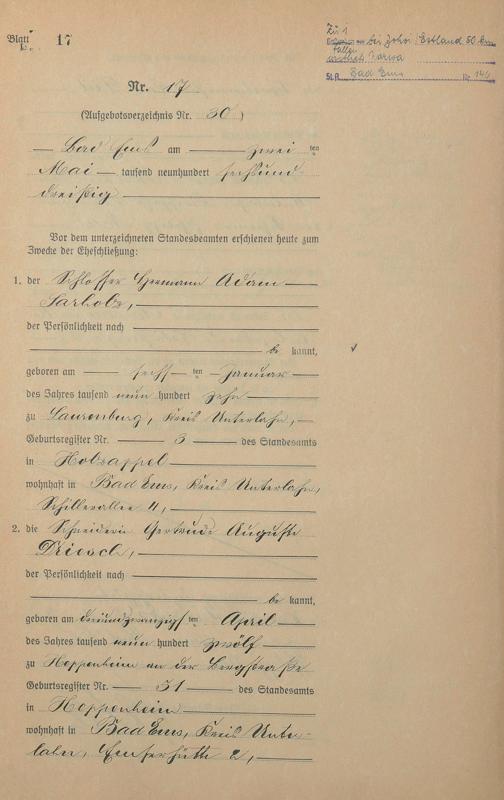 Blatt 17
Zu 1
bei Johvi / Estland 50 km
gefallen
westlich Narwa
St.A. Bad Ems Nr. 146
Nr. 17
(Aufgebotsverzeichnis Nr. 30)
Bad Ems am zwei ten
Mai tausend neunhundert sechsund-
dreißig
Vor dem unterzeichneten Standesbeamten erschienen heute zum
Zwecke der Eheschließung:
1. der Schlosser Hermann Adam
Sarholz,
der Persönlichkeit nach
be kannt,
geboren am sechs ten Januar
des Jahres tausend neun hundert zehn
zu Laurenburg, Kreis Unterlahn,
Geburtsregister Nr. 3 des Standesamts
in Holzappel
wohnhaft in Bad Ems, Kreis Unterlahn,
Schillerallee 4,
2. die Schneiderin Gertrude Auguste
Driesch,
der Persönlichkeit nach
be kannt,
geboren am dreiundzwanzigs ten April
des Jahres tausend neun hundert zwölf
zu Heppenheim an der Bergstraße
Geburtsregister Nr. 51 des Standesamts
in Heppenheim
wohnhaft in Bad Ems, Kreis Unter-
lahn, Emserhütte 2,